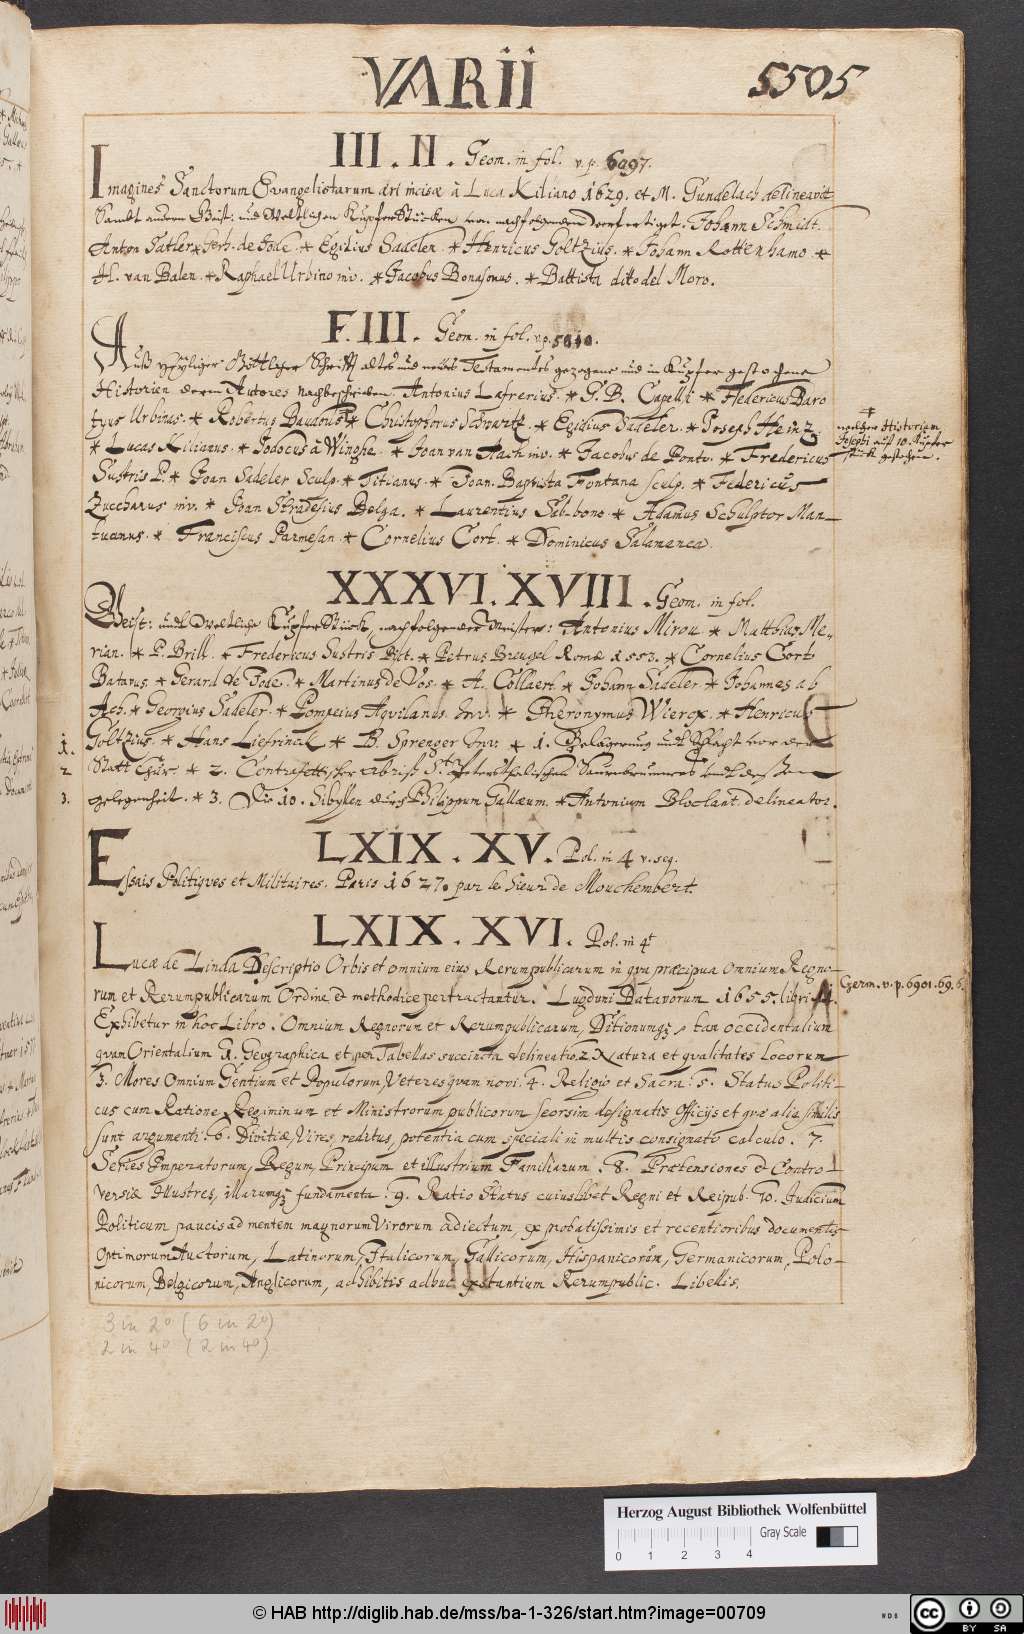 VARII
5505
III. N. Geom. in fol. v.p. 6097.
Imagines Sanctorum Evangelistarum æri incisæ à Luca Kiliano 1629. et M. Gundelach delineavit
Sambt andern Geist: und Weltlichen Kupfer Stücken von nachfolgenden verfertiget. Johann Schmidt.
Anton Satler * Gerh. de Jode. * Egidius Sadeler. * Henricus Goltzius. * Johann Rottenhamo. *
H. van Balen. * Raphael Urbino inv. * Jacobus Bonasonus. * Battista ditto del Moro.
F. III. Geom. in fol. v.p. 5610.
Auß Heyliger Göttlicher Schrifft altes und neües Testamentes gezogene und in Kupfer gestochene
Historien deren Autores nachbeschrieben. Antonius Lafrerius. * G. B. Capelli * Federicus Baro
tzus Urbinas. * Robertus Baudous * Christophorus Schwartz. * Egidius Sadeler. * Joseph Heinz.
* Lucas Kilianus. * Jodocus à Winghe. * Joan van Aach inv. * Jacobus de Ponto. * Fredericus
Sustris P. * Joan Sadeler Sculp. * Titianus. * Joan. Baptista Fontana sculp. * Federicus
Zuccharus inv. * Joan Stradesius Belga. * Laurentius Sab-bono. * Adamus Schulptor Man-
tuanus. * Franciscus Parmesan. * Cornelius Cort. * Dominicus Salamanca.
* welchen Historiam
Josephi auf 10. Kupfer
stück gestochen.
XXXVI. XVIII. Geom. in fol.
Geist: und Weltliche Kupfer Stück, nachfolgender Meister: Antonius Mirou * Matthius Me-
rian. * P. Brill. * Fredericus Sustris Pict. * Petrus Breugel Romæ 1553. * Cornelius Cort
Batavus. * Gerard de Jode. * Martinus de Vos. * A. Collaert. * Johann Sadeler * Johannes ab
Ach. * Georgius Sadeler. * Pompeius Aquilanus Inv. * Hieronymus Wierox. * Henricus
Goltzius. * Hans Liefrinck * B. Sprenger Inv. * 1. Belägerung und Schlacht vor der
Statt Chür. * 2. Contrafettischer abriß St. Petersthalischen Saurbrunnens und dessen
gelegenheit. * 3. Die 10. Sibyllen durch Philippum Gallæum. * Antonium Bloclant. delineator.
1.
2
3.
LXIX. XV. Pol. in 4 v. seq.
Essais Politiques et Militaires. Paris 1627. par le Sieur de Mouchembert.
LXIX. XVI. Pol. in 4t
Lucæ de Linda Descriptio Orbis et omnium ejus Rerumpublicarum in qua præcipua Omnium Regno-
rum et Rerumpublicarum Ordine & methodice pertractantur. Lugduni Batavorum 1655. libri 14.
Germ. v. p. 6901. 69. 6.
Exhibetur in hoc Libro. Omnium Regnorum et Rerumpublicarum, Ditionumq; tam occidentalium
quam Orientalium 1. Geographica et per Tabellas succincta delineatio. 2. Natura et qualitates Locorum
3. Mores Omnium Gentium et Populorum, Veteres quam novi. 4. Religio et Sacra. 5. Status Politi-
cus cum Ratione Regiminum et Ministrorum publicorum seorsim designatis Officijs et quæ alia similis
sunt argumenti. 6. Divitiæ, Vires, reditus, potentia cum speciali in multis consignato calculo. 7.
Series Imperatorum, Regum, Principum et illustrium Familiarum. 8. Prætensiones & Contro-
versiæ Illustres, illarumq; fundamenta. 9. Ratio Status cuiuslibet Regni et Reipub. 10. Judicium
Politicum paucis ad mentem magnorum Virorum adiectum, ex probatissimis et recentioribus documentis
optimorum Auctorum, Latinorum, Italicorum, Gallicorum, Hispanicorum, Germanicorum, Polo-
nicorum, Belgicorum, Anglicorum, adhibitis adhuc extantium Rerumpublic. Libellis.
3 in 2° (6 in 2°)
2 in 4° (2 in 4°)
Herzog August Bibliothek Wolfenbüttel
Gray Scale
0 1 2 3 4
© HAB http://diglib.hab.de/mss/ba-1-326/start.htm?image=00709
WDB
cc BY SA